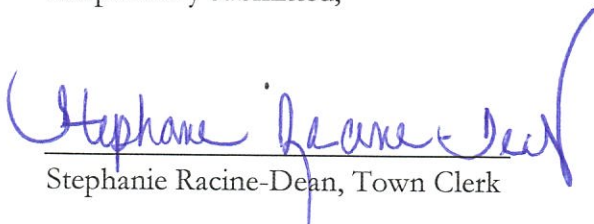 submitted,
Stephanie Racine-Dean
Stephanie Racine-Dean, Town Clerk